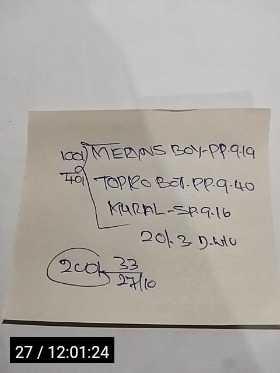 100) MERINS BOY-PP.9.19
40) TOPRO BOT-PP.9.40
MURAL-SP.9.16
20/. 3
200/. 33
27/10
27 / 12:01:24